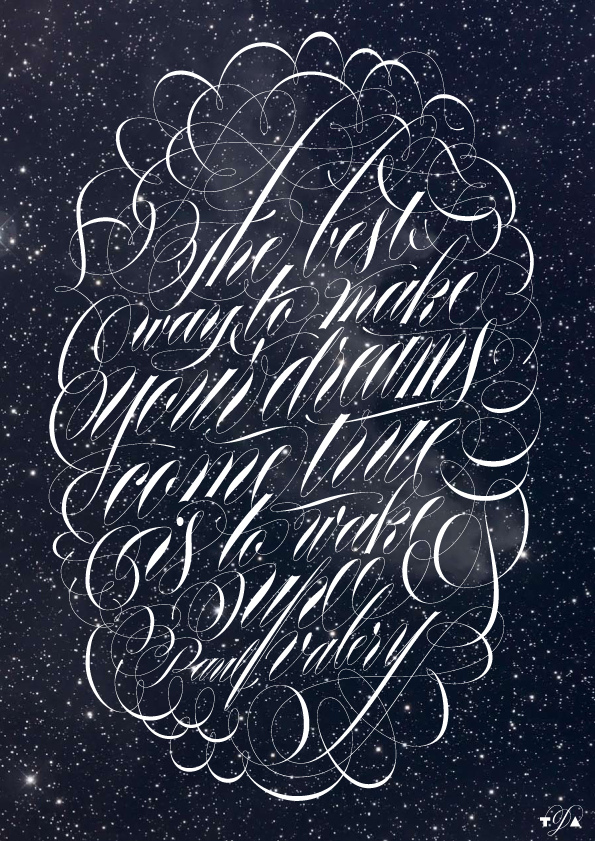 the best
way to make
your dreams
come true
is to wake
up
Paul Valéry
T.DA